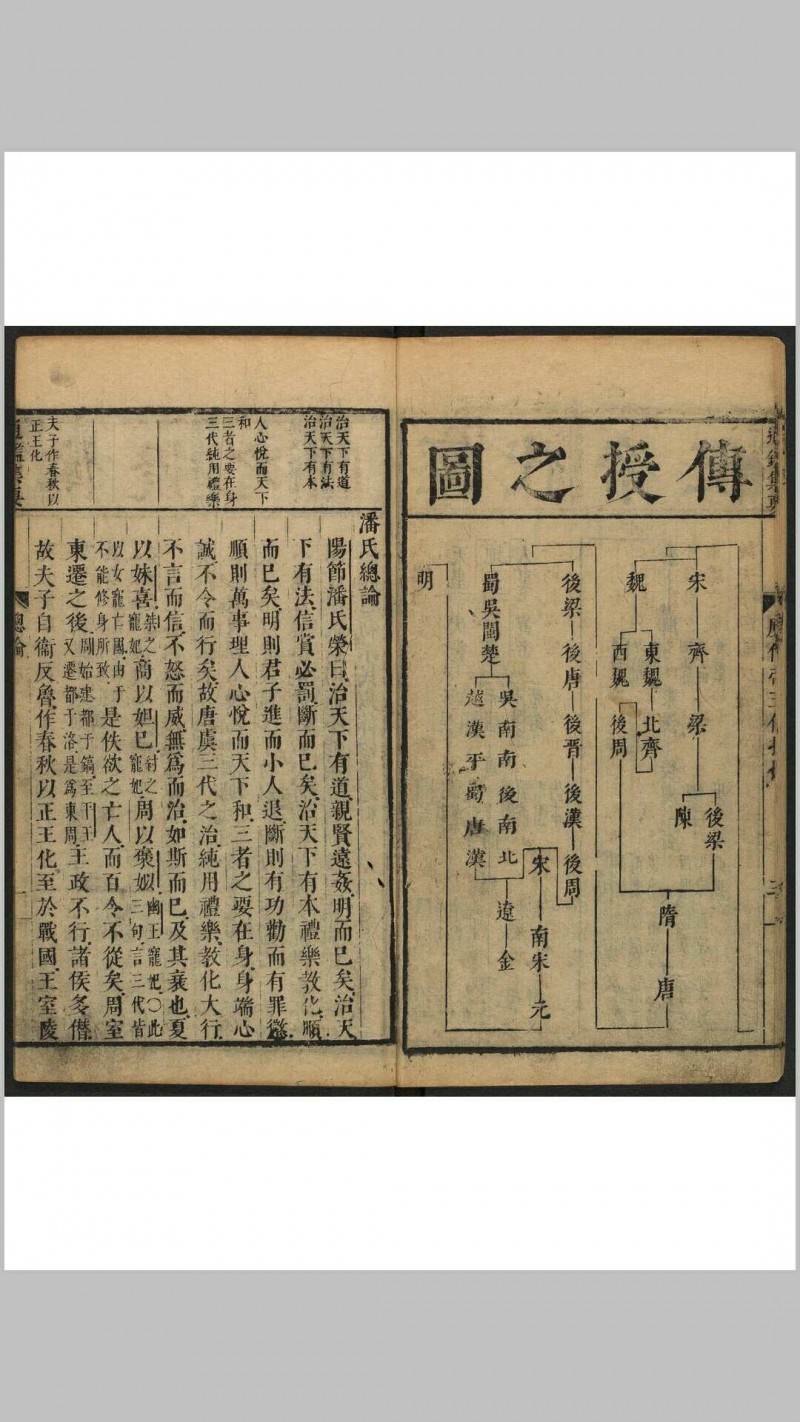 傳授之圖
宋
齊
梁
後梁
陳
魏
東魏
北齊
西魏
後周
隋
唐
後梁
後唐
後晉
後漢
後周
蜀吳閩楚
吳南南後南北
越漢平蜀唐漢
遼
金
宋
南宋
元
明
治天下有道
治天下有法
治天下有本
人心悅而天下
和
三者之要在身
三代純用禮樂
夫子作春秋以
正王化
潘氏總論
陽節潘氏榮曰治天下有道親賢遠姦明而已矣治天
下有法信賞必罰斷而已矣治天下有本禮樂教化順
而已矣明則君子進而小人退斷則有功勸而有罪懲
順則萬事理人心悅而天下和三者之要在身身端心
誠不令而行矣故唐虞三代之治純用禮樂教化大行
不言而信不怒而威無爲而治如斯而已及其衰也夏
以妹喜桀之寵妃商以妲已紂之寵妃周以褒姒幽王寵妃〇此三句言三代皆
以女寵亡國由于不能修身所致是佚欲之亡人而百令不從矣周室
東遷之後周始建都于鎬至平王又遷都于洛是爲東周王政不行諸侯多僭
故夫子自衞反魯作春秋以正王化至於戰國王室陵
總論